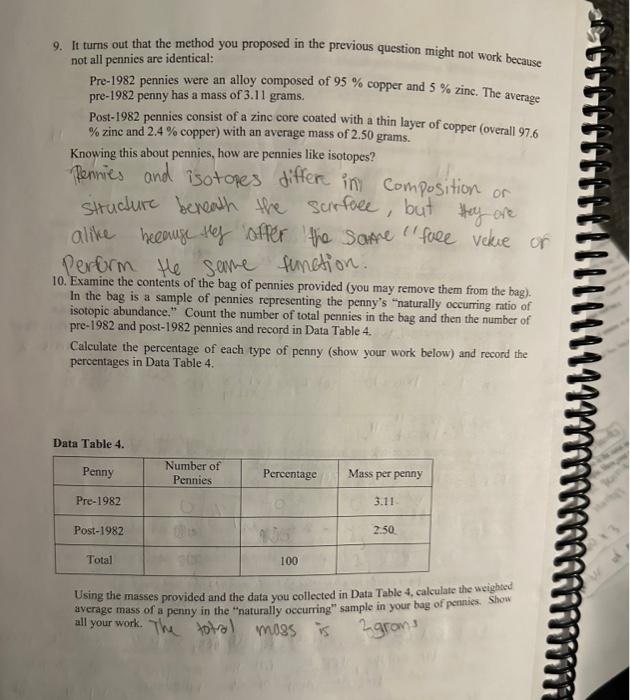 9. It turns out that the method you proposed in the previous question might not work because
not all pennies are identical:
Pre-1982 pennies were an alloy composed of 95 % copper and 5 % zinc. The average
pre-1982 penny has a mass of 3.11 grams.
Post-1982 pennies consist of a zinc core coated with a thin layer of copper (overall 97.6
% zinc and 2.4 % copper) with an average mass of 2.50 grams.
Knowing this about pennies, how are pennies like isotopes?
Pennies and isotopes differe in composition or
structure beneath the surface, but they are
alike because they offer the same "face value or
Perform the same function.
10. Examine the contents of the bag of pennies provided (you may remove them from the bag).
In the bag is a sample of pennies representing the penny's "naturally occurring ratio of
isotopic abundance." Count the number of total pennies in the bag and then the number of
pre-1982 and post-1982 pennies and record in Data Table 4.
Calculate the percentage of each type of penny (show your work below) and record the
percentages in Data Table 4.
Data Table 4.
Penny Number of Pennies Percentage Mass per penny
Pre-1982 3.11
Post-1982 2.50
Total 100
Using the masses provided and the data you collected in Data Table 4, calculate the weighted
average mass of a penny in the "naturally occurring" sample in your bag of pennies. Show
all your work. The total mass is 2grams